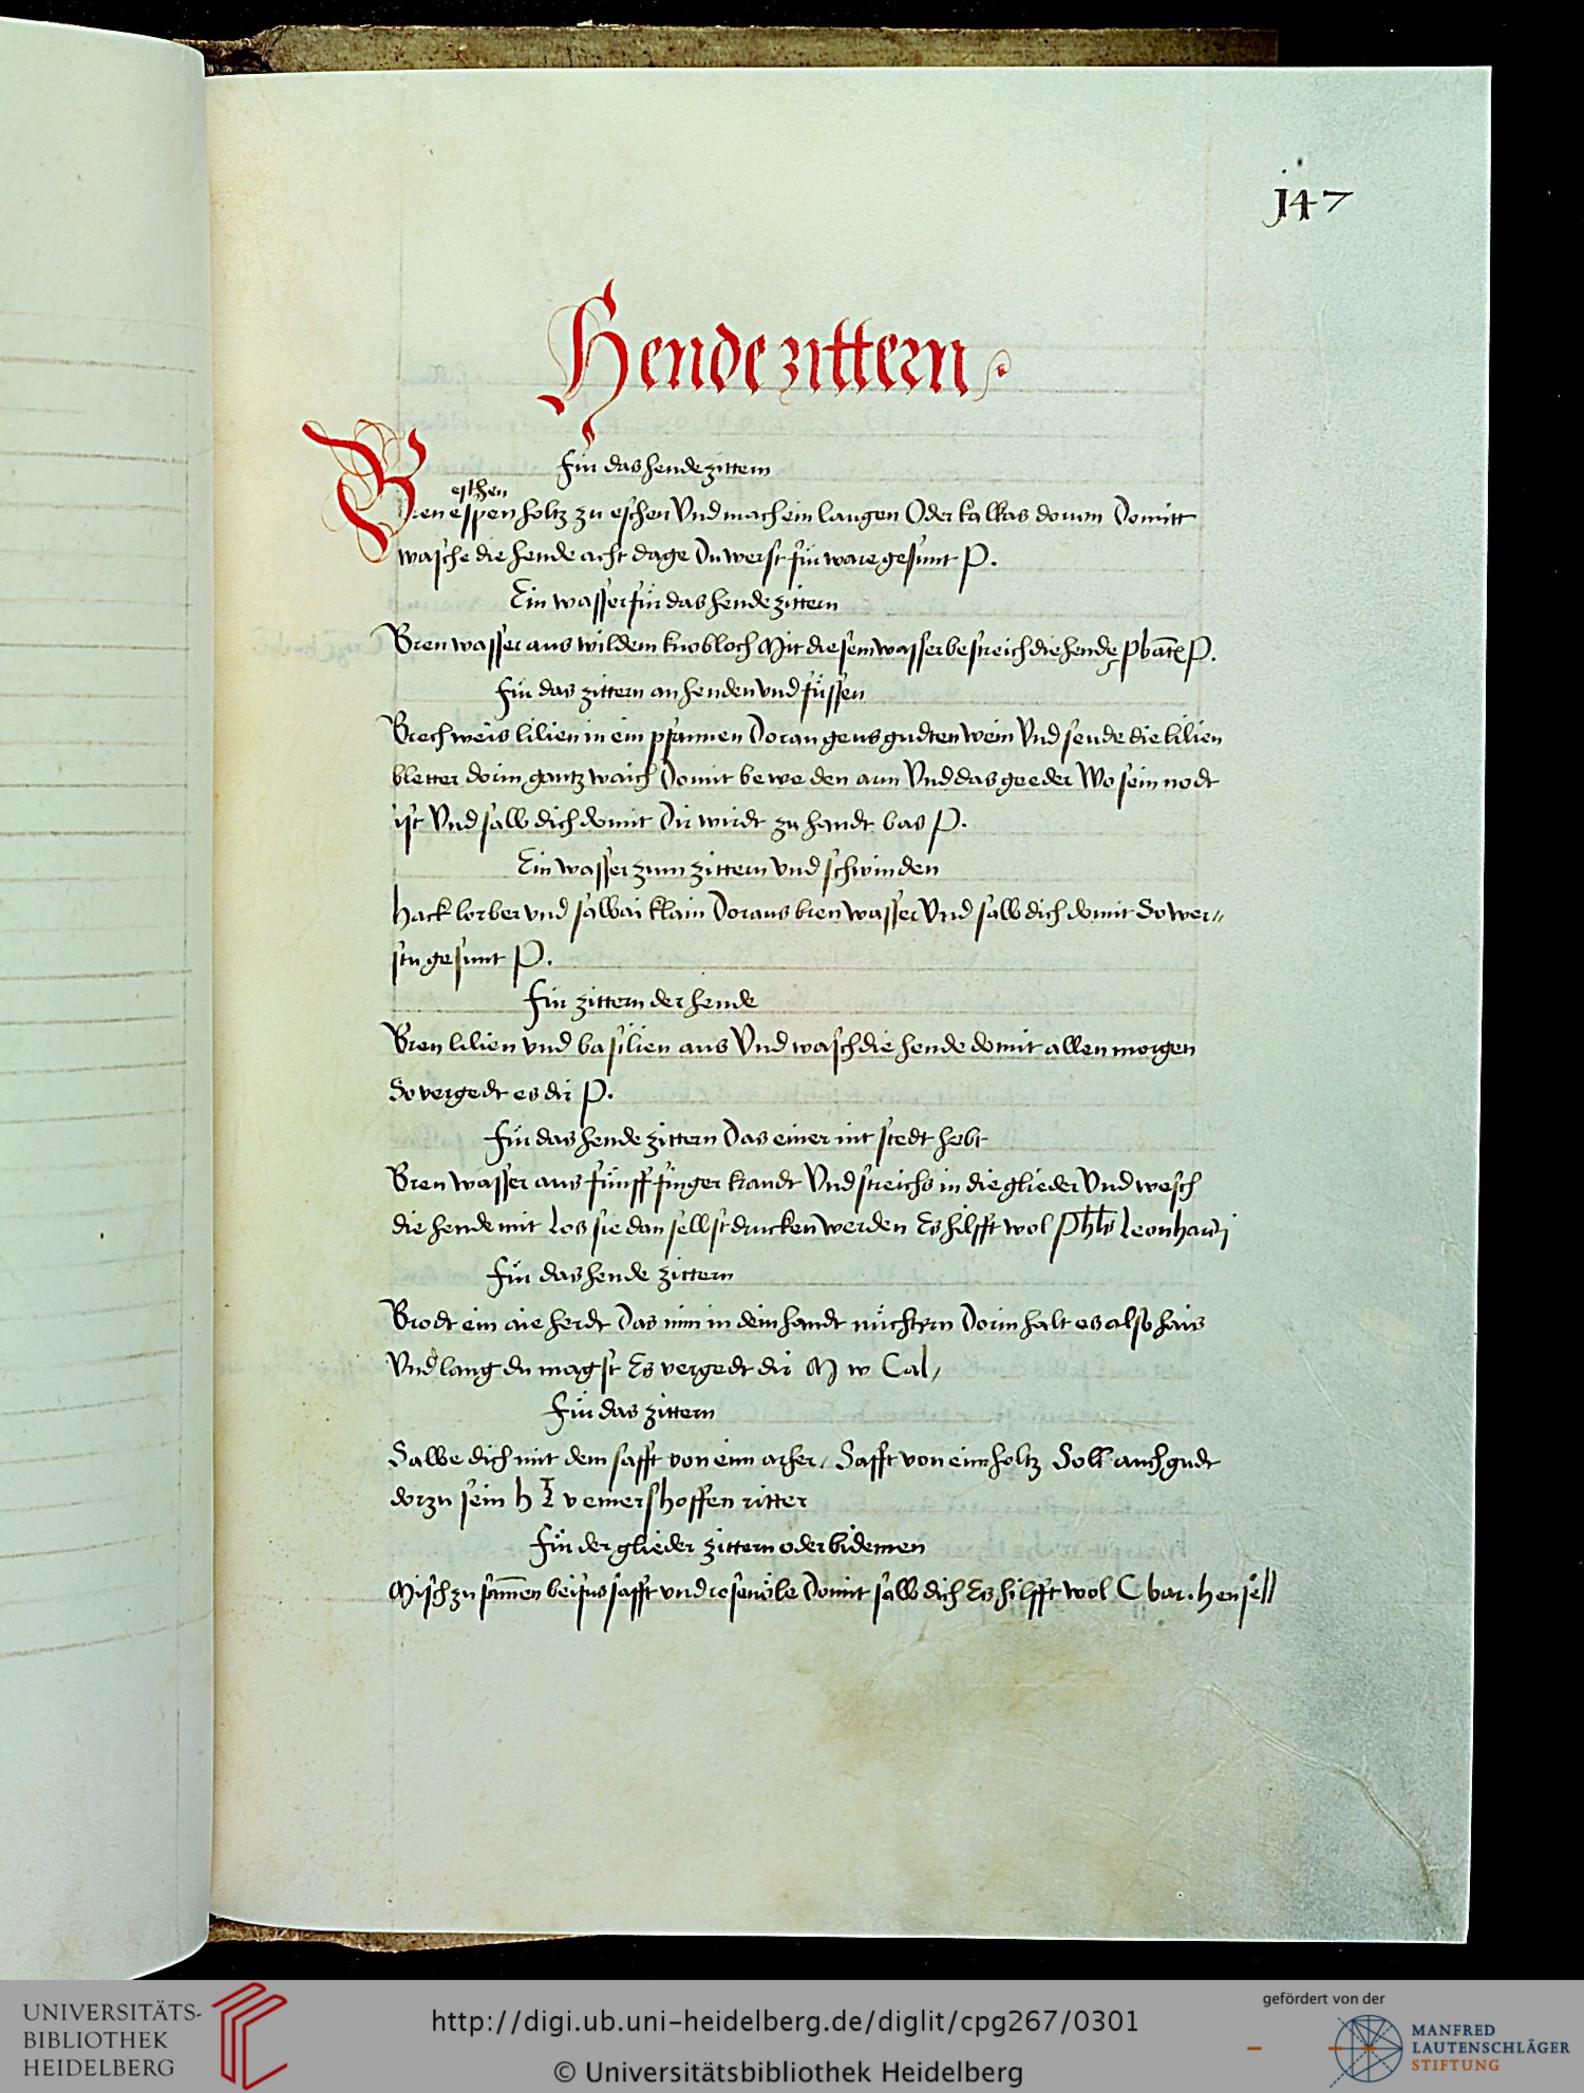 j47
Hende zittern
Für das hende zittern
eschen
Bren espen holtz zu eschen Vnd mach ein laugen Oder kalkas dorum Domitt
wasche die hende acht dage Du werst für ware gesunt P.
Ein wasser für das hende zittern
Bren wasser aus wildem knobloch Mit diesem wasser bestreich die hende P.
Für das zittern an henden vnd füssen
Brech weis lilien in ein pfannen Doran geus gudten wein Vnd seude die lilien
bletter dorin gantz waich Domit bewe den arm Vnd das geeder Wo sein nodt
ist Vnd salb dich domit Dir wirdt zu handt bas P.
Ein wasser zum zittern vnd schwinden
Hack lorber vnd salbai klain Doraus bren wasser Vnd salb dich domit So wer-
stu gesunt P.
Für zittern der hende
Bren lilien vnd basilien aus Vnd wasch die hende domit allen morgen
So vergedt es dir P.
Für das hende zittern Das einer nit stedt hebt
Bren wasser aus fünff finger kraudt Vnd streichs in die glieder Vnd wesch
die hende mit Los sie dan sellst drucken werden Es hilfft wol Leonhardi
Für das hende zittern
Brodt ein aie herdt Das nim in dein handt nüchtern Dorin halt es also hais
Vnd lang du magst Es vergedt dir M w Cal,
Für das zittern
Salbe dich mit dem safft von eim Safft von eim holtz Soll auch gudt
dorzu sein h v emershoffen ritter
Für der glieder zittern oder bidemen
Misch zu samen beifus safft vnd rosen öle Domit salb dich Es hilfft wol C bar. hensell
UNIVERSITÄTS-
BIBLIOTHEK
HEIDELBERG
http://digi.ub.uni-heidelberg.de/diglit/cpg267/0301
© Universitätsbibliothek Heidelberg
gefördert von der
MANFRED
LAUTENSCHLÄGER
STIFTUNG